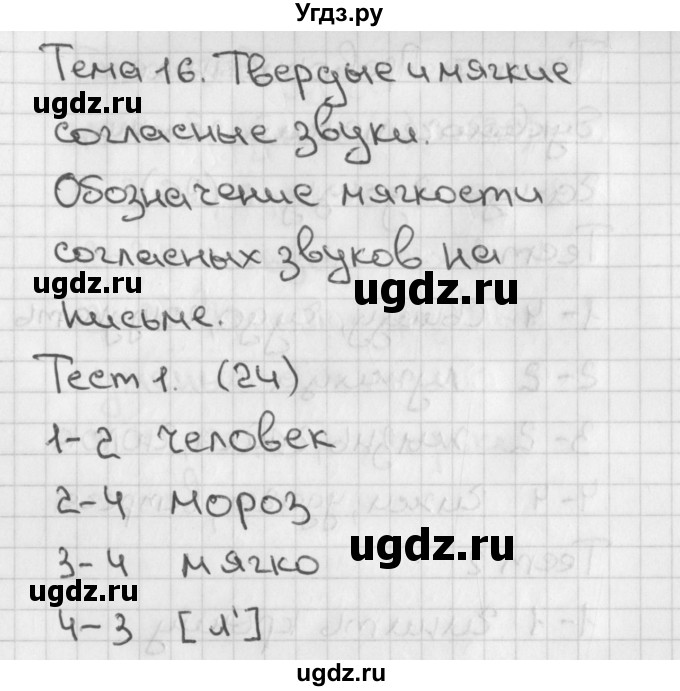 Угдз.ру
Тема 16. Твердые и мягкие
ugdz.ru
согласные звуки.
Обозначение мягкости
согласных звуков на
ugdz.ru
ugdz.ru
письме.
Тест 1. (24)
1-2 человек
2-4 мороз
ugdz.ru
3-4 мягко
ugdz.ru
4-3 [л']
ugdz.ru